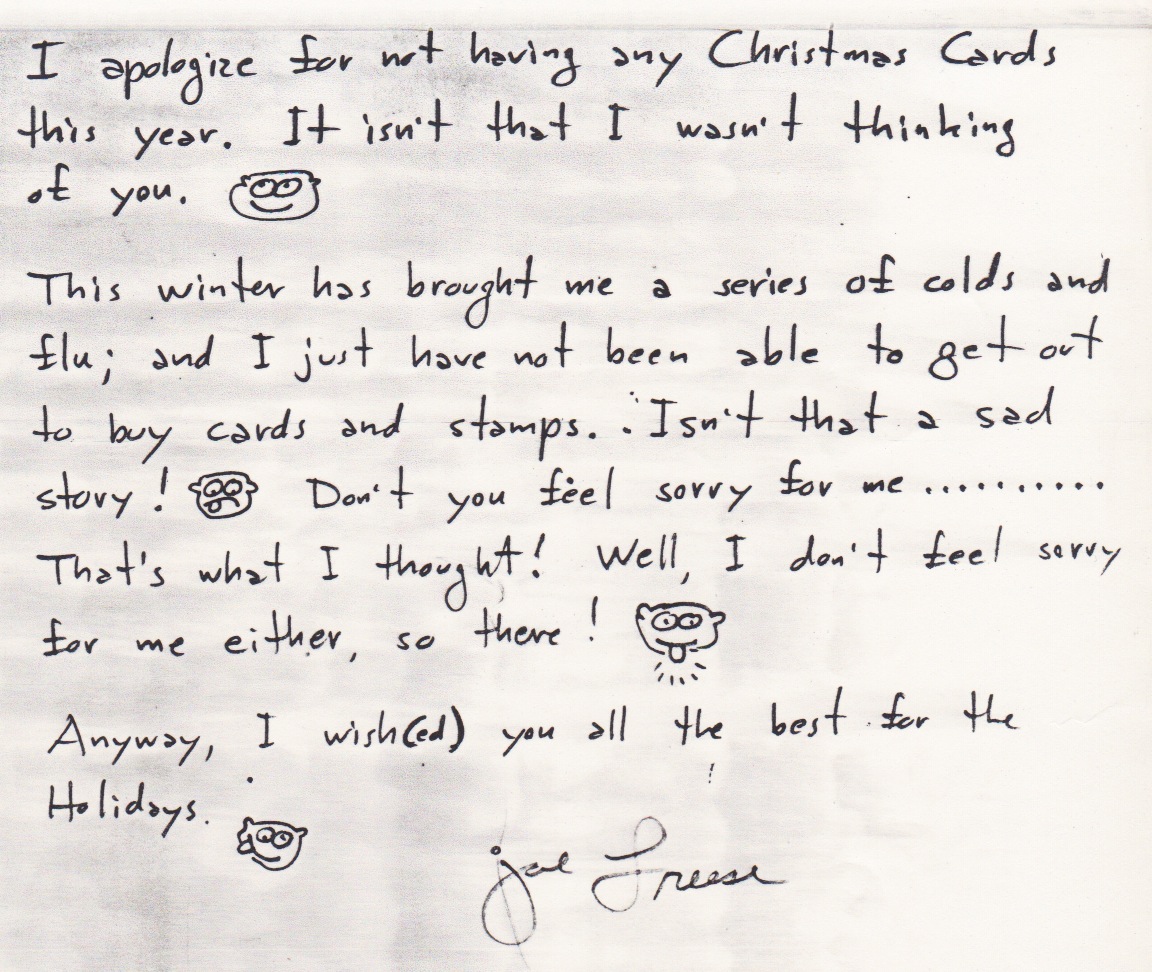 I apologize for not having any Christmas Cards
this year. It isn't that I wasn't thinking
of you.
This winter has brought me a series of colds and
flu; and I just have not been able to get out
to buy cards and stamps. Isn't that a sad
story! Don't you feel sorry for me ..........
That's what I thought! Well, I don't feel sorry
for me either, so there!
Anyway, I wish(ed) you all the best for the
Holidays.
joe Freese